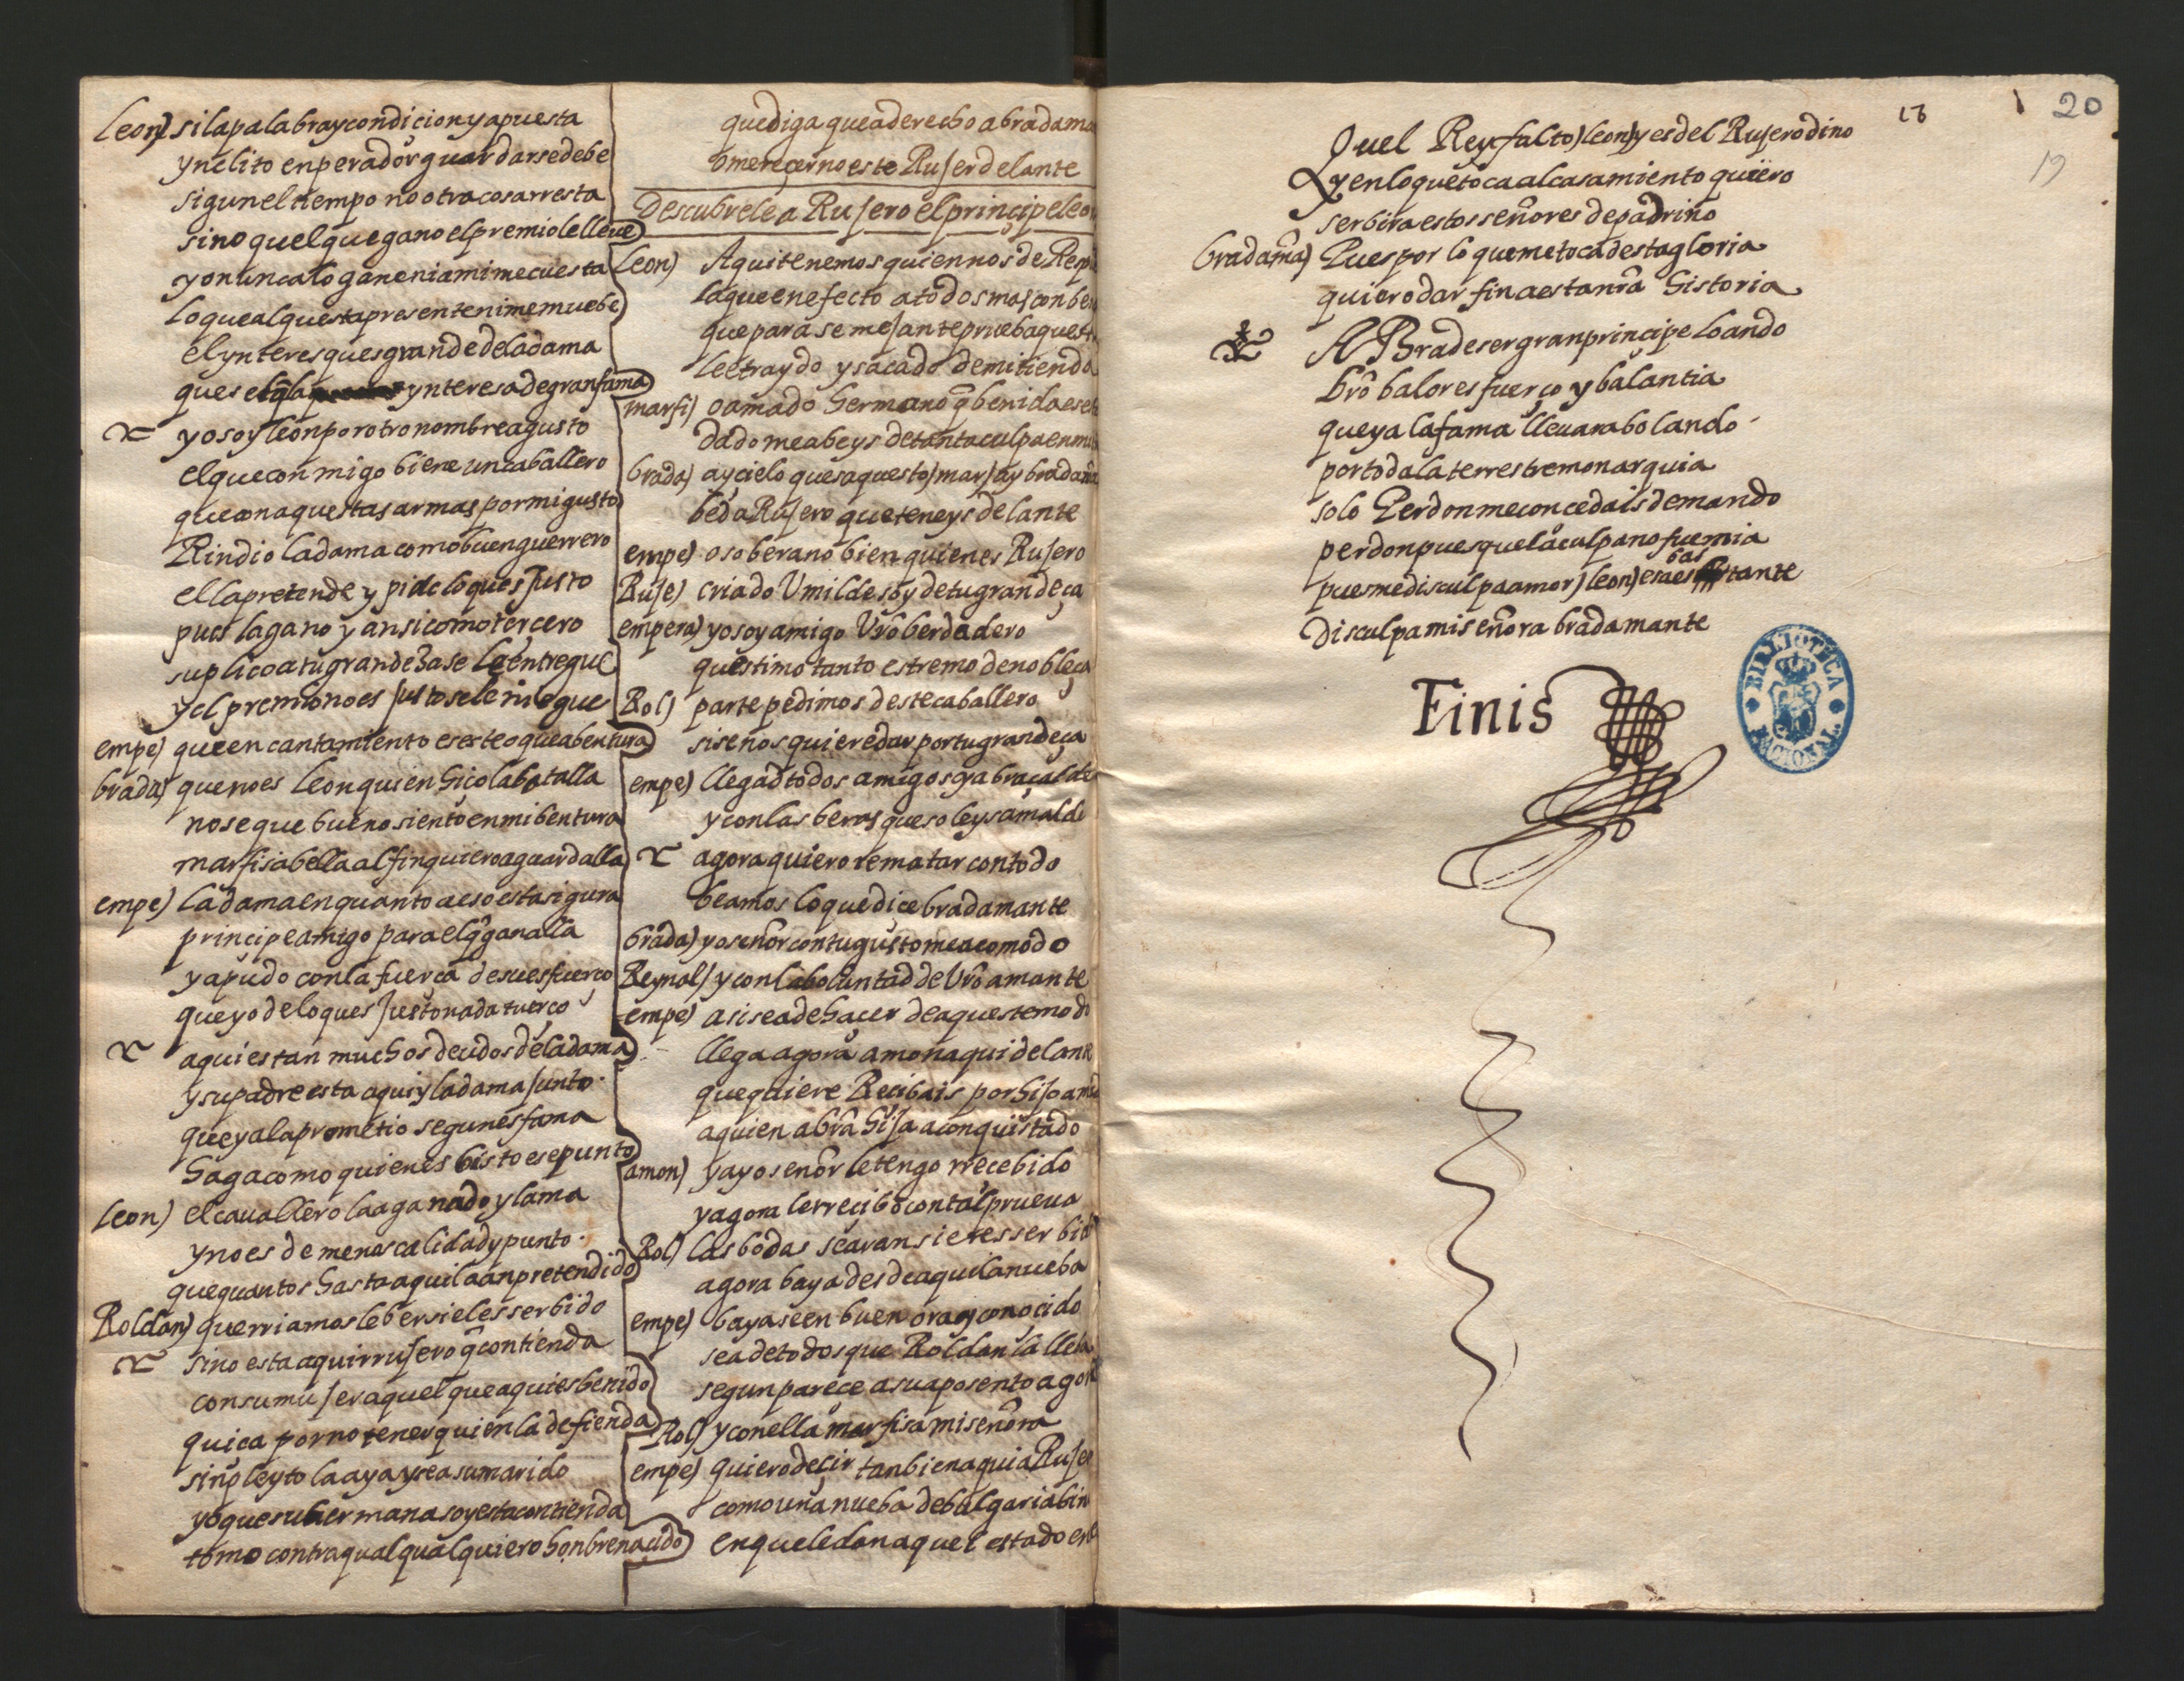 leon) si la palabra y condicion y apuesta
ynclito enperador guardarse debe
sigun el tiempo no otra cosa rresta
sino quel que gano el premio le lleue
yo nunca lo gane ni a mi me cuesta
lo que al questa presente ni me muebe
el ynteres ques grande de la dama
ques el q̃ la ynteresa de gran fama
yo soy leon por otro nombre agusto
el que conmigo biene un caballero
que con aquestas armas por mi gusto
Rindio la dama como buen guerrero
el la pretende y pide lo ques Justo
pues la gano y ansi como tercero
suplico a tu grandeza se le entregue
y el premio no es justo se le niegue
empe) que encantamiento es este o que abentura
brada) que no es leon quien hiço la batalla
no se que bueno siento en mi bentura
marfisa bella al fin quiero aguardalla
empe) la dama en quanto a eso esta sigura
principe amigo para el q̃ ganalla
ya pudo con la fuerça de su esfuerço
que yo de lo ques Justo nada tuerço
aqui estan muchos deudos de la dama
y su padre esta aqui y la dama junto
que ya la prometio segun es fama
haga como quien es bisto ese punto
leon) el cauallero la a ganado y la ma
y no es de menos calidad y punto
que quantos hasta aqui la an pretendido
Roldan) querriamosle ber si el es serbido
si no esta aqui rrujero q̃ contienda
con su mujer aquel que aqui es benido
quiça por no tener quien la defienda
sin pleyto la aya y sea su marido
yo que su hermana soy esta contienda
tomo contra qual qualquiero honbre nacido
que diga que a derecho a bradama
o mereçer no este Rujer delante
Descubrele a Rujero el principe leon
leon) Aqui tenemos quien nos de Resp
la que en efecto a todos mas conben
que para semejante prueba quest
le e traydo y sacado de mi tienda
marfi) o amado hermano q̃ benida es
dado me abeys de tanta culpa enm
brada) ay cielo ques aquesto) mar) ay bradam
bed a Rujero que teneys delante
empe) o soberano bien quien es Rujero
Ruje) criado Vmilde soy de tu grandeça
empera) yo soy amigo Vrõ berdadero
questimo tanto estremo de nobleça
Rol) parte pedimos deste caballero
si se nos quiere dar por tu grandeça
empe) llegad todos amigos y abraçalde
y con las beras que soleys amalde
agora quiero rematar con todo
beamos lo que dice bradamante
brada) yo señor con tu gusto me acomodo
Reynol) y con la boluntad de Vrõ amante
empe) asi sea de haçer de aqueste modo
llega agora amon aqui delante
que quiere Recibais por hijo am
a quien a brã hija a conquistado
amon) ya yo señor le tengo rrecebido
y agora le rrecibo con tal prueua
Rol) las bodas se aran si eres serbido
agora baya desde aqui la nueba
empe) bayase en buen ora y conoçido
sea de todos que Roldan la lleba
segun pareçe a su aposento agora
Rol) y con ella marfisa mi señora
empe) quiero deçir tanbien aqui a Rujer
como una nueba de bulgaria bin
en que le dan aquel estado en
18 20
19
Quel Rey falto) leon) y es del Rujero dino
y en lo que toca al casamiento quiero
serbir a estos señores de padrino
bradamã) Pues por lo que me toca desta gloria
quiero dar fin a esta nrã historia
A Bra de ser gran principe loando
brõ balor esfuerço y balantia
que ya la fama lleuara bolando
por toda la terrestre monarquia
solo Perdon me concedais demando
perdon pues que la culpa no fue mia
pues me disculpa amor) leon) esa es bastante
Disculpa mi señora bradamante
Finis
BIBLIOTECA NACIONAL